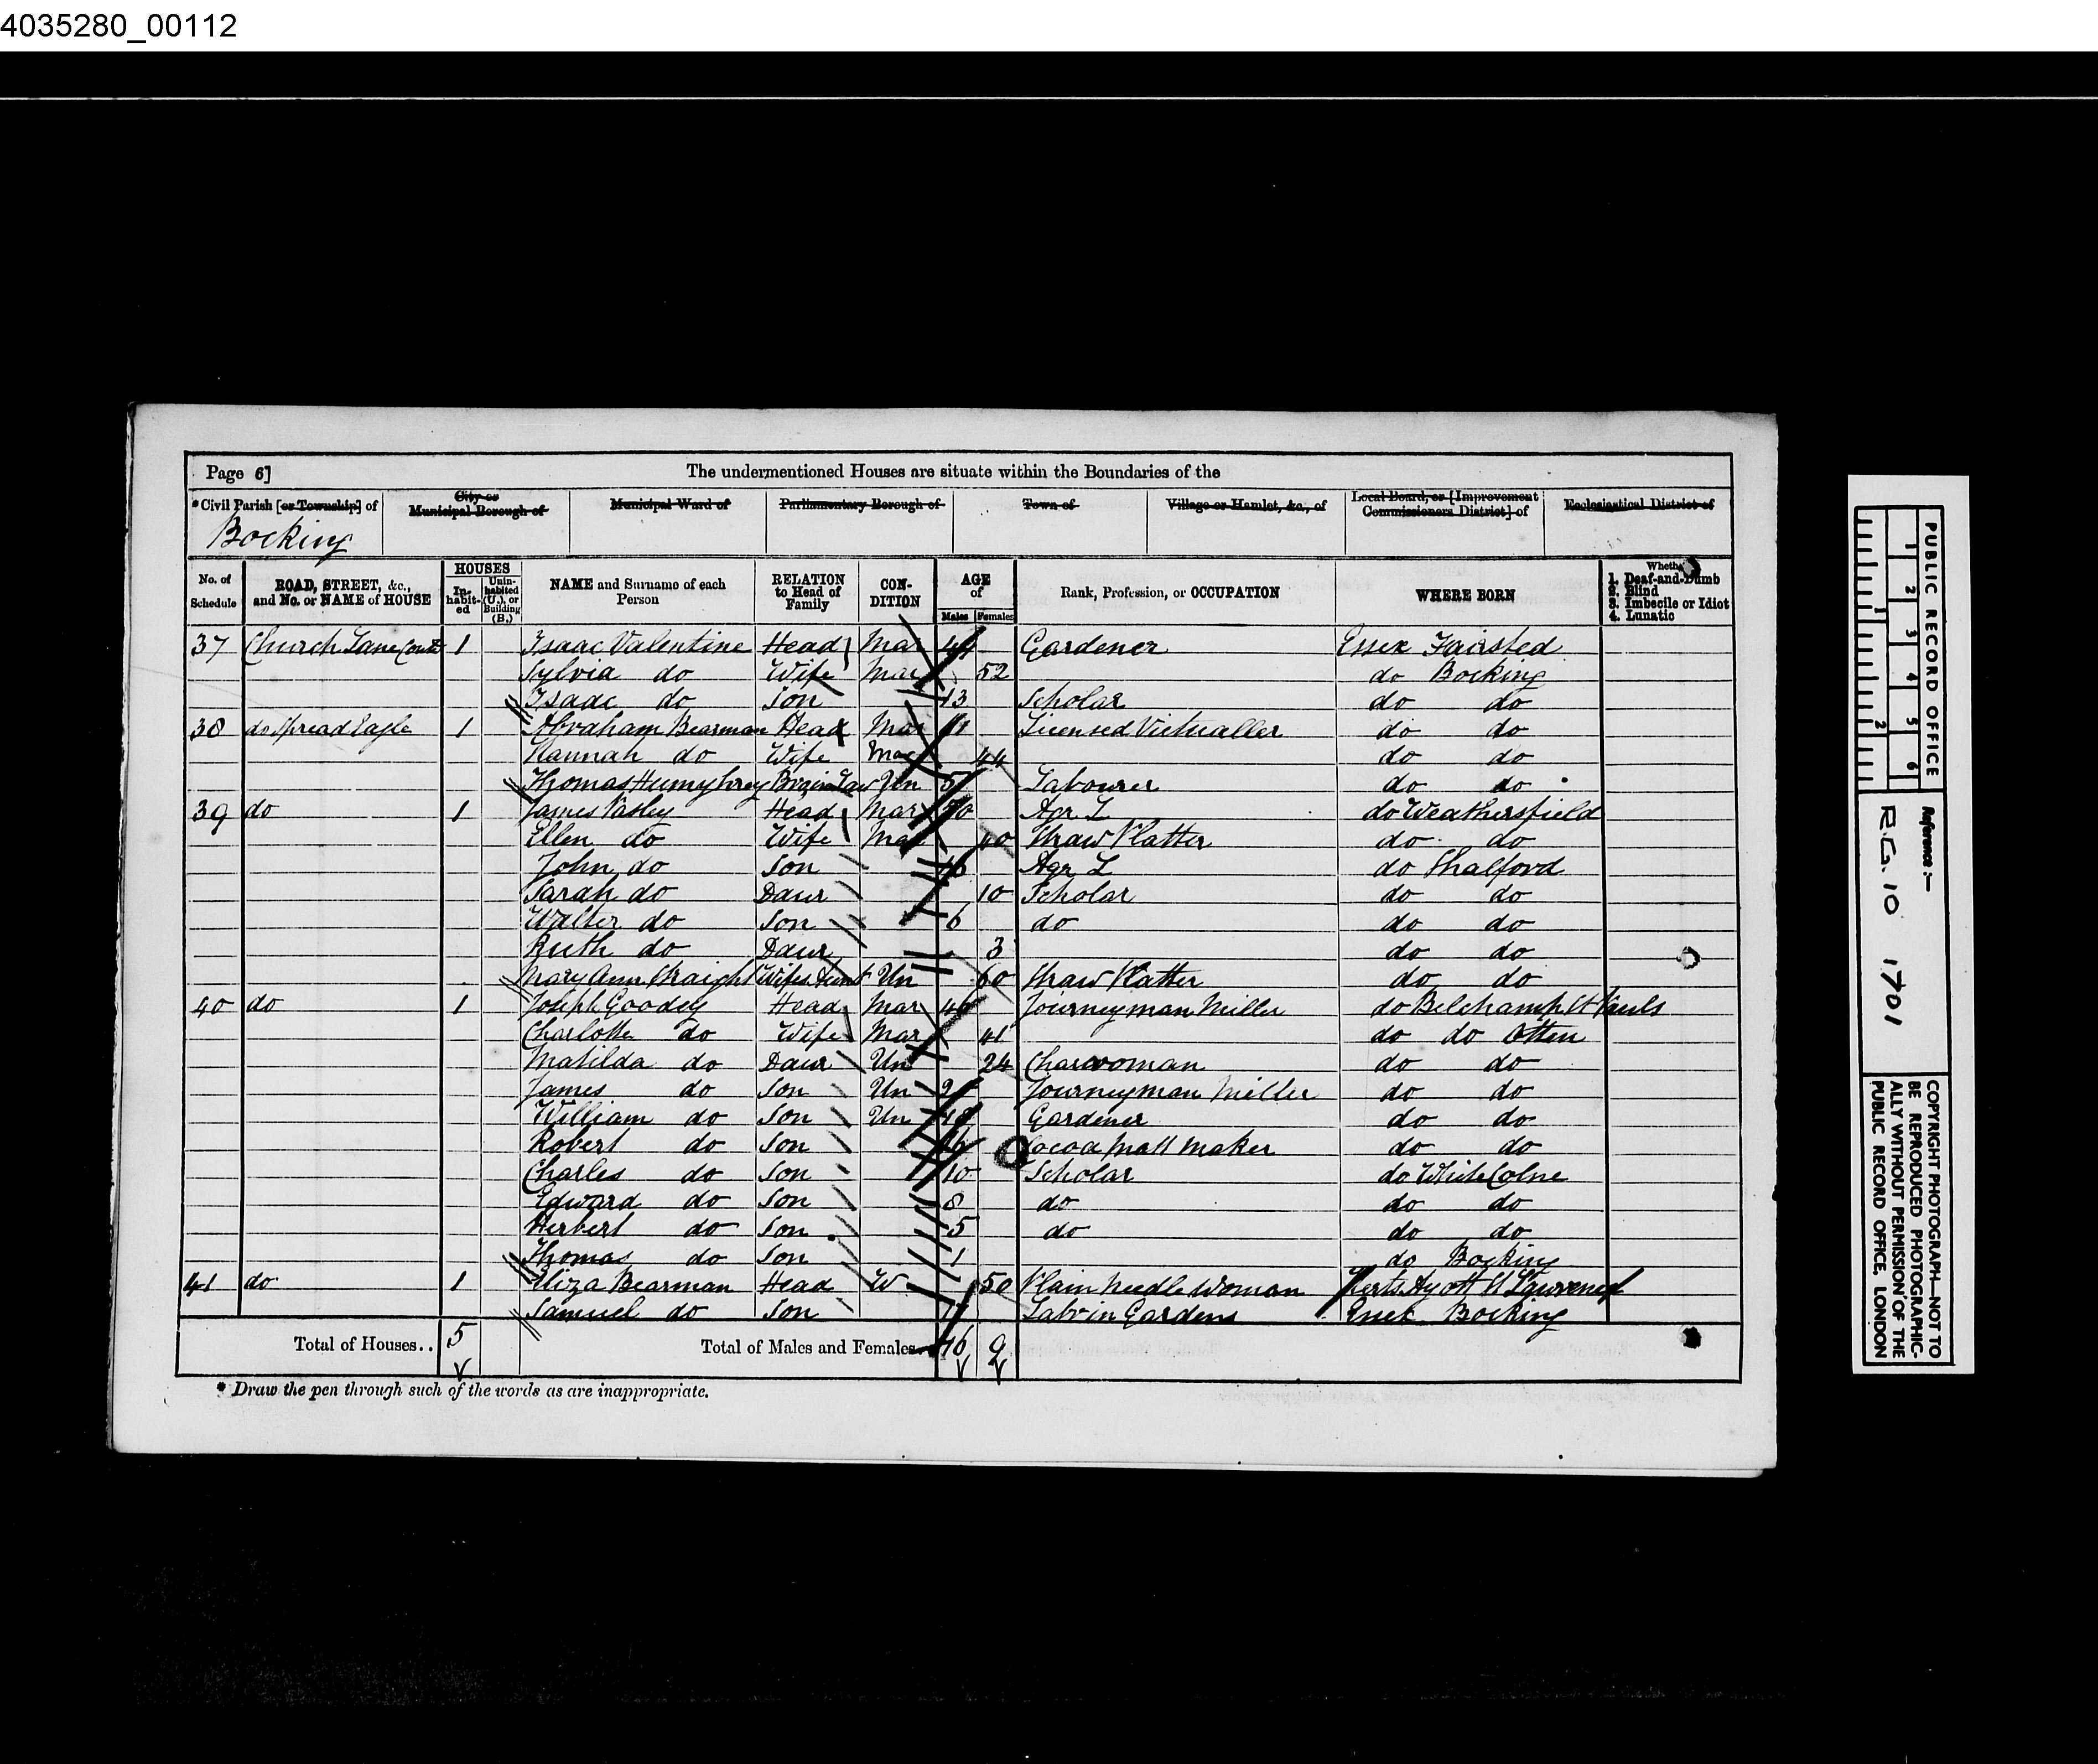 4035280_00112
Page 6] The undermentioned Houses are situate within the Boundaries of the
*Civil Parish [or Township] of City or Municipal Borough of Municipal Ward of Parliamentary Borough of Town of Village or Hamlet, &c., of Local Board, or [Improvement Commissioners District] of Ecclesiastical District of
Bocking
No. of Schedule ROAD, STREET, &c., and No. or NAME of HOUSE HOUSES Inhabited Uninhabited (U.), or Building (B.) NAME and Surname of each Person RELATION to Head of Family CONDITION AGE of Males Females Rank, Profession, or OCCUPATION WHERE BORN Whether 1. Deaf-and-Dumb 2. Blind 3. Imbecile or Idiot 4. Lunatic
37 Church Lane 1 Isaac Valentine Head Mar Gardener Essex Fairsted
Sylvia do Wife Mar 52 do Bocking
Isaac do Son 13 Scholar do do
38 do Spread Eagle 1 Abraham Bearman Head Mar Licensed Victualler do do
Hannah do Wife Mar 44 do do
Thomas Humphrey Bro in Law Un Labourer do do
39 do 1 James Head Mar Agr L do Weathersfield
Ellen do Wife Mar 40 Straw Platter do do
John do Son 16 Agr L do Shalford
Sarah do Daur 10 Scholar do do
Walter do Son 6 do do do
Ruth do Daur 3 do do
Mary Ann Straight Wifes Aunt Un 60 Straw Platter do do
40 do 1 Joseph Goodey Head Mar 46 Journeyman Miller do Belchamp St Pauls
Charlotte do Wife Mar 41 do do Otten
Matilda do Daur Un 24 Charwoman do do
James do Son Un Journeyman Miller do do
William do Son Un 18 Gardener do do
Robert do Son 16 Cocoa Matt Maker do do
Charles do Son 10 Scholar do White Colne
Edward do Son 8 do do do
Herbert do Son 5 do do do
Thomas do Son 1 do Bocking
41 do 1 Eliza Bearman Head W 50 Plain Needle Woman Herts Ayott St Lawrence
Samuel do Son Lab in Gardens Essex Bocking
Total of Houses.. 5 Total of Males and Females.. 16 9
* Draw the pen through such of the words as are inappropriate.
PUBLIC RECORD OFFICE
1 2 3 4 5 6
1 2
Reference:-
R.G. 10 1701
COPYRIGHT PHOTOGRAPH—NOT TO
BE REPRODUCED PHOTOGRAPHIC-
ALLY WITHOUT PERMISSION OF THE
PUBLIC RECORD OFFICE, LONDON